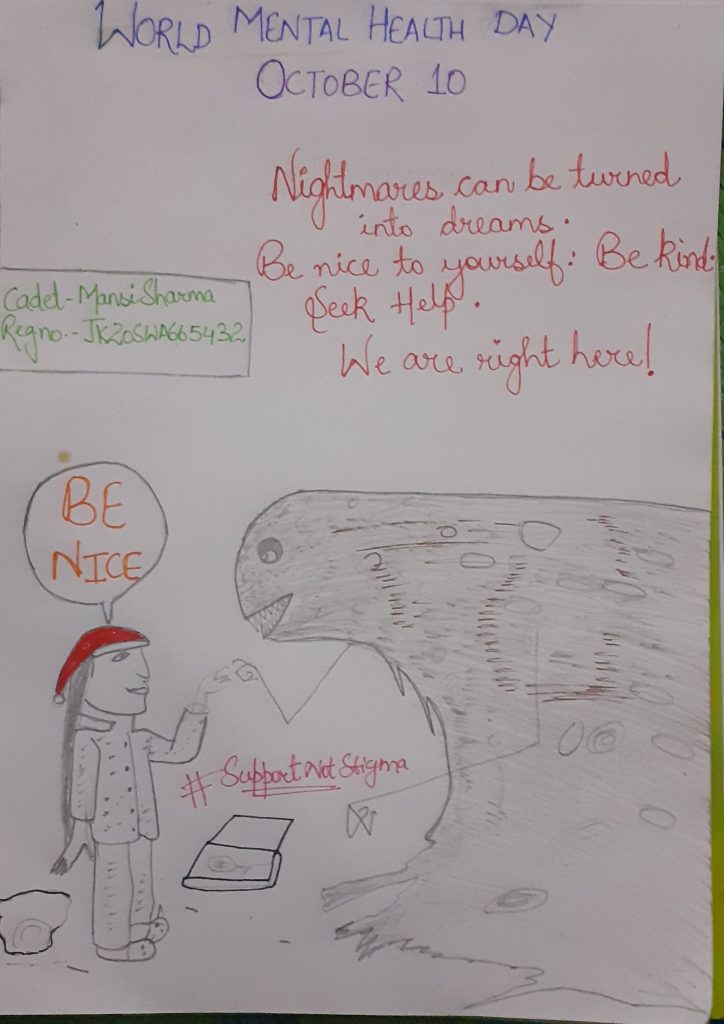 WORLD MENTAL HEALTH DAY
OCTOBER 10
Nightmares can be turned
into dreams.
Be nice to yourself: Be kind.
Seek Help.
We are right here!
Cadet-Mansi Sharma
Regno.-JK20SWA665432
BE
NICE
#SupportNotStigma